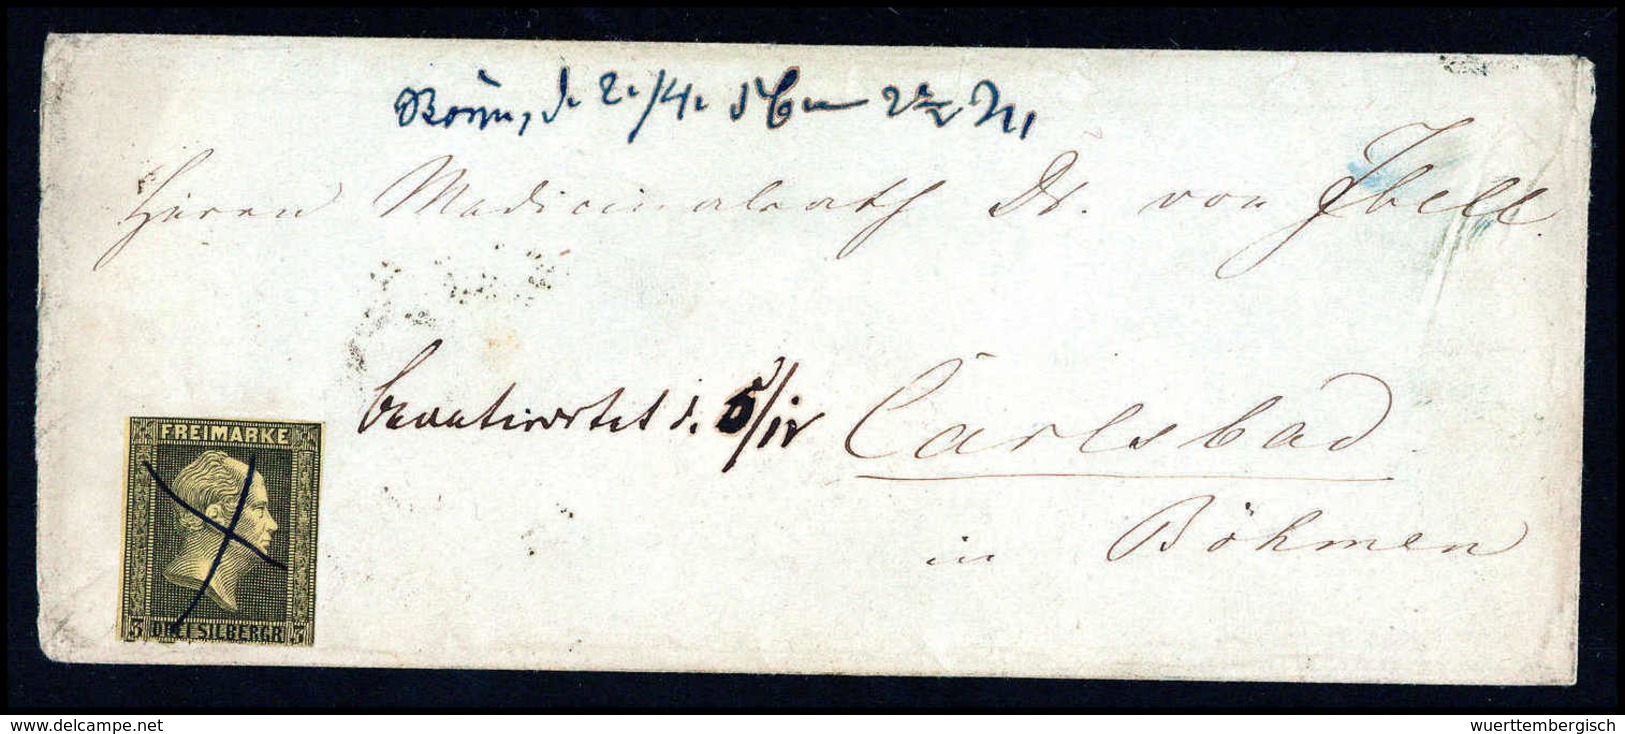 Bonn, d. 2./4. 56
Herrn Medicinalrath Dr. von Ibell
beantwortet d. 5/IV
Carlsbad
in Böhmen
FREIMARKE
3 DREI SILBERGR. 3
www.delcampe.net
wuerttembergisch